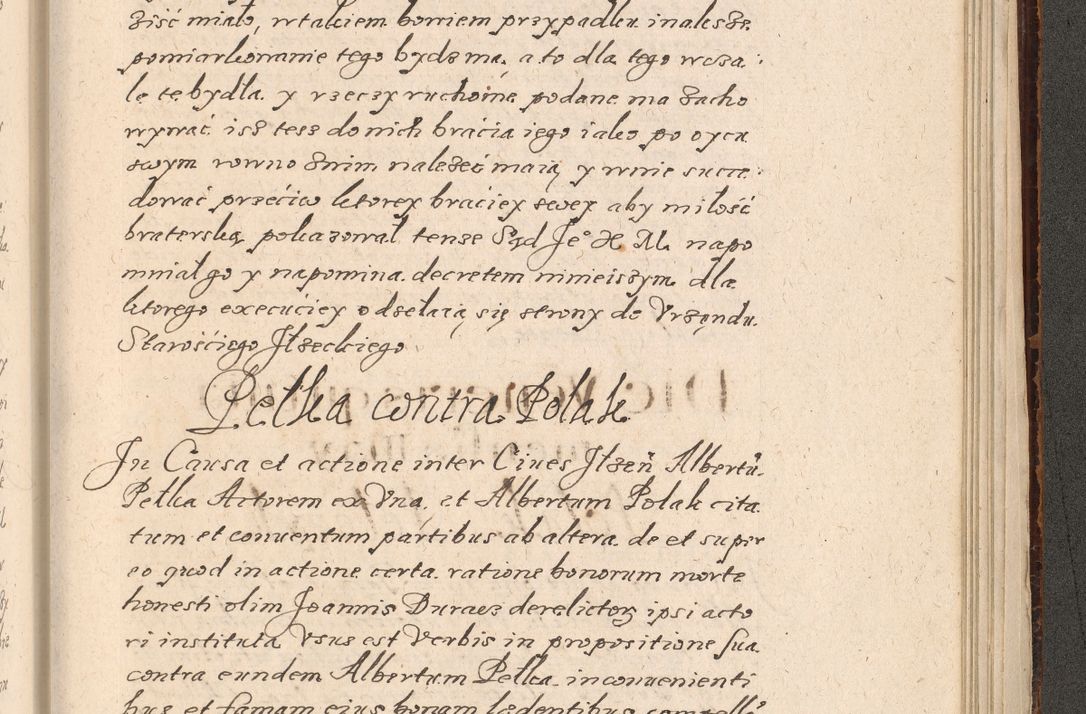 ziść miało, w takiem bowiem przypadku inaksze
pomiarkowanie tego bydz ma, a to dla tego wcza
le te bydła y rzeczy ruchome podane ma zacho
wywać isz tesz do nich bracia iego iako po oycu
swym rowno znim nalezeć maią y wnie succe:
dować przeciw ktorey braciey swey aby miłość
braterską pokazował tenze Sąd Je° X M. napo
mniał go y napomina decretem ninieiszym dla
ktorego execuciey odsełaią się strony do Vrzęndu
Starościego Jłzeckiego
Pełka contra Polak
Jn Causa et actione inter Ciues Jłzeñ Albertū
Pełka Actorem ex Vna, et Albertum Polak cita
tum et conuentum partibus ab altera de et super
eo quod in actione certa ratione bonorum morte
honesti olim Joannis Duracz derelictoꝝ ipsi acto
ri instituta Vsus est Verbis in propositione sua
contra eundem Albertum Pełka inconuenienti
bus et famam eius bonam lædentibus